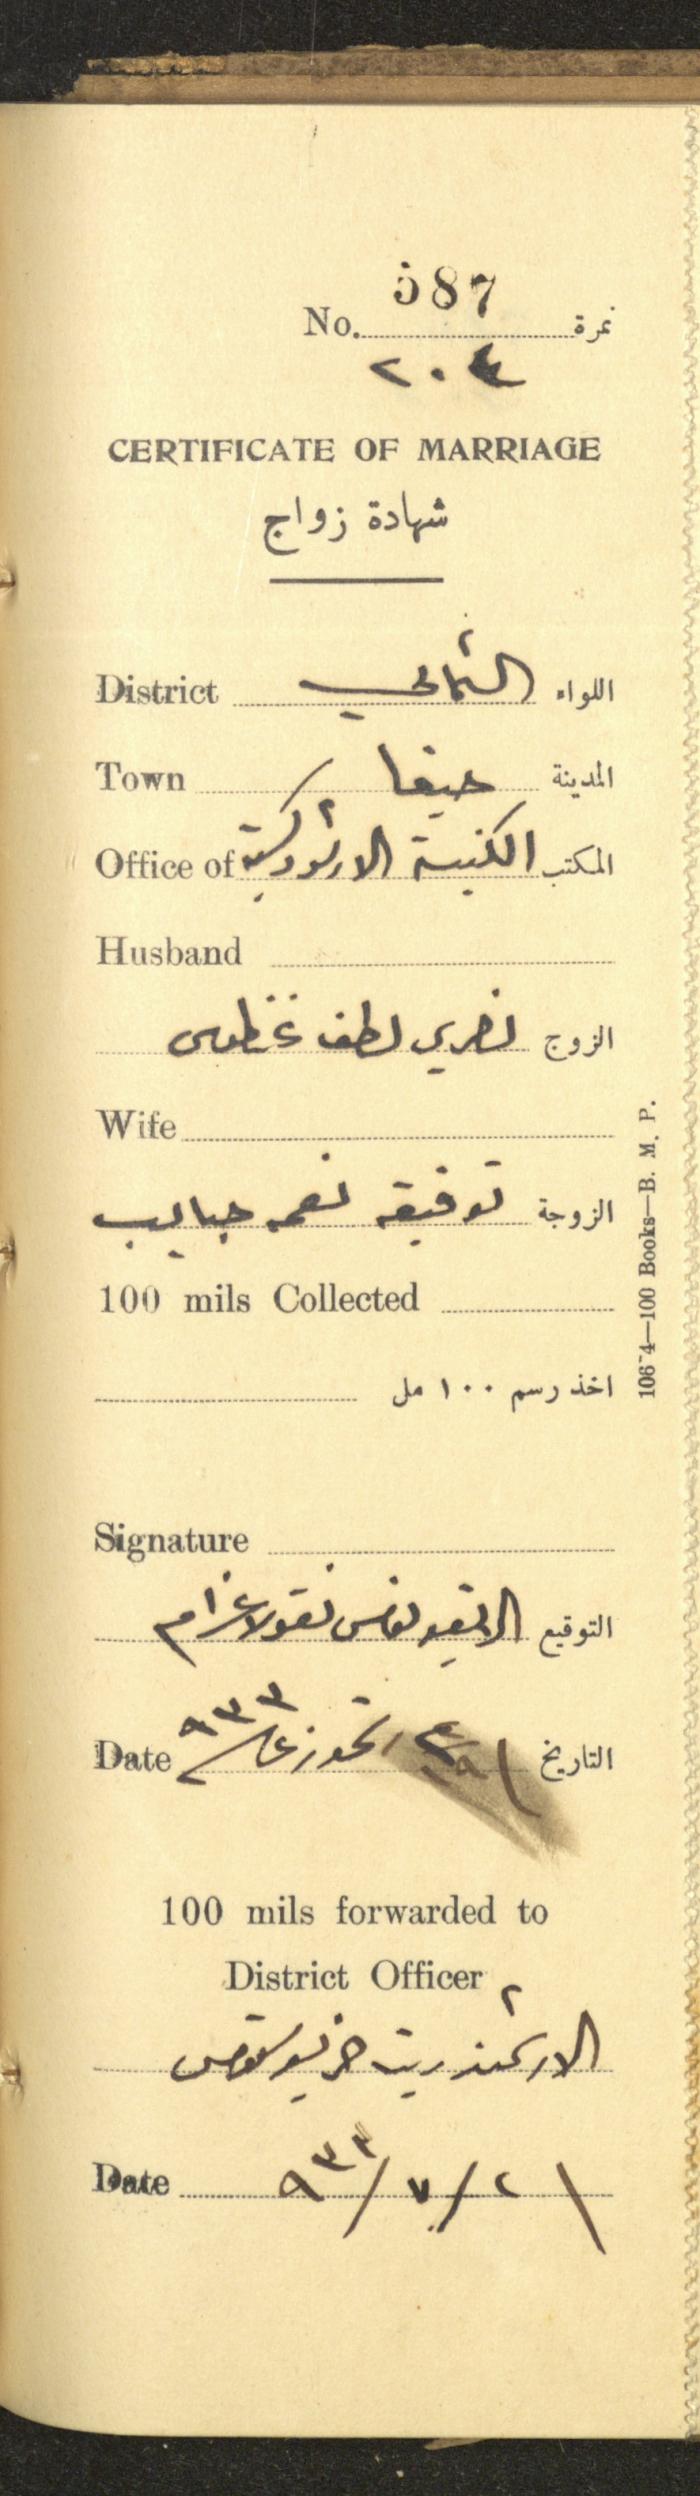 No. 587 نمرة
٢٠٤
CERTIFICATE OF MARRIAGE
شهادة زواج
District الشمالي اللواء
Town حيفا المدينة
Office of الكنيسة الارثوذكسية المكتب
Husband
الزوج نصري لطف غطاس
Wife
الزوجة توفيقه نعمه حبايب
100 mils Collected
اخذ رسم ١٠٠ مل
Signature
التوقيع نقولا عزام
Date تموز ٩٣٣ التاريخ
100 mils forwarded to
District Officer
الارشمندريت
Date ٢/٧/٩٣٣
106-4—100 Books—B. M. P.